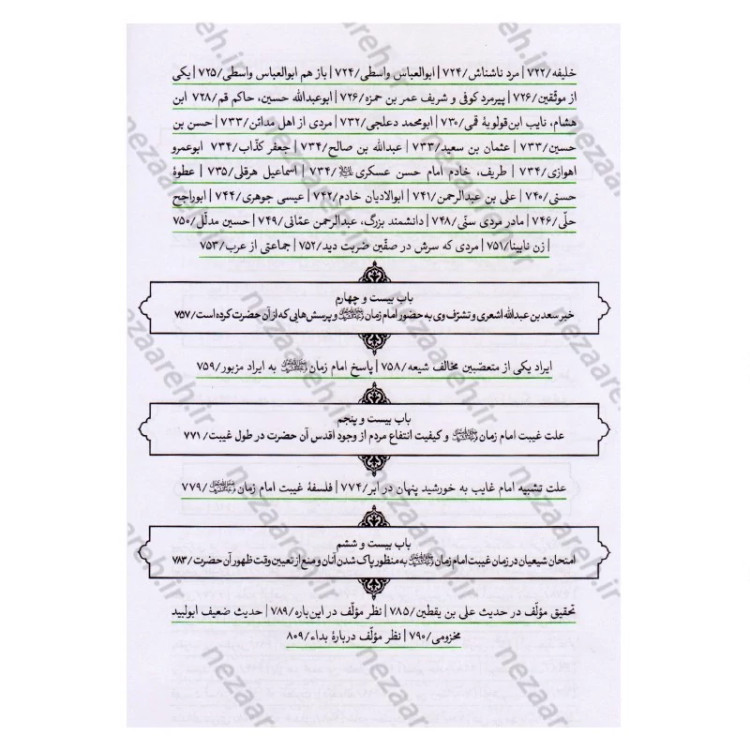 خلیفه/۷۲۲ | مرد ناشناش/۷۲۴ | ابوالعباس واسطی/۷۲۴ | باز هم ابوالعباس واسطی/۷۲۵ | یکی
از موثقین/۷۲۶ | پیرمرد کوفی و شریف عمر بن حمزه/۷۲۶ | ابوعبدالله حسین، حاکم قم/۷۲۸ ابن
هشام، نایب ابن قولویۀ قمی/۷۳۰ | ابومحمد دعلجی/۷۳۲ | مردی از اهل مدائن/۷۳۳ | حسن بن
حسین/۷۳۳ | عثمان بن سعید/۷۳۳ | عبدالله بن صالح/۷۳۴ | جعفر کذّاب/۷۳۴ ابوعمرو
اهوازی/۷۳۴ | طریف، خادم امام حسن عسکری/۷۳۴ | اسماعیل هرقلی/۷۳۵ | عطوۀ
حسنی/۷۴۰ | علی بن عبدالرحمن/۷۴۱ | ابوالادیان خادم/۷۴۲ | عیسی جوهری/۷۴۴ | ابوراجح
حلّی/۷۴۶ | مادر مردی سنّی/۷۴۸ | دانشمند بزرگ، عبدالرحمن عمّانی/۷۴۹ | حسین مدلّل/۷۵۰
| زن نابینا/۷۵۱ | مردی که سرش در صفّین ضربت دید/۷۵۲ | جماعتی از عرب/۷۵۳
باب بیست و چهارم
خبر سعد بن عبدالله اشعری و تشرّف وی به حضور امام زمان و پرسش‌هایی که از آن حضرت کرده است/۷۵۷
ایراد یکی از متعصّبین مخالف شیعه/۷۵۸ | پاسخ امام زمان به ایراد مزبور/۷۵۹
باب بیست و پنجم
علت غیبت امام زمان و کیفیت انتفاع مردم از وجود اقدس آن حضرت در طول غیبت/۷۷۱
علت تشبیه امام غایب به خورشید پنهان در ابر/۷۷۴ | فلسفۀ غیبت امام زمان/۷۷۹
باب بیست و ششم
امتحان شیعیان در زمان غیبت امام زمان به منظور پاک شدن آنان و منع از تعیین وقت ظهور آن حضرت/۷۸۳
تحقیق مؤلّف در حدیث علی بن یقطین/۷۸۵ | نظر مؤلّف در این باره/۷۸۹ | حدیث ضعیف ابولبید
مخزومی/۷۹۰ | نظر مؤلّف دربارۀ بداء/۸۰۹
nezaareh.ir